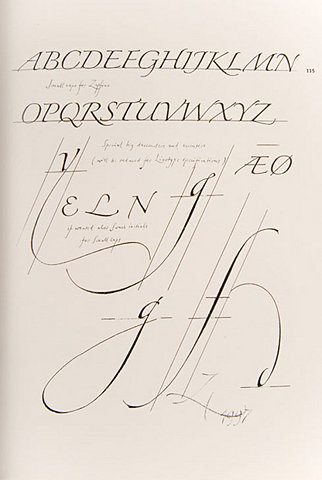 ABCDEFGHIJKLMN
115
Small caps for Zapfino
OPQRSTUVWXYZ
Special big descenders and ascenders
(will be reduced for Linotype specifications)
y g ÆØ
E L N
if wanted also Swash initials
for Small caps
g h
1997